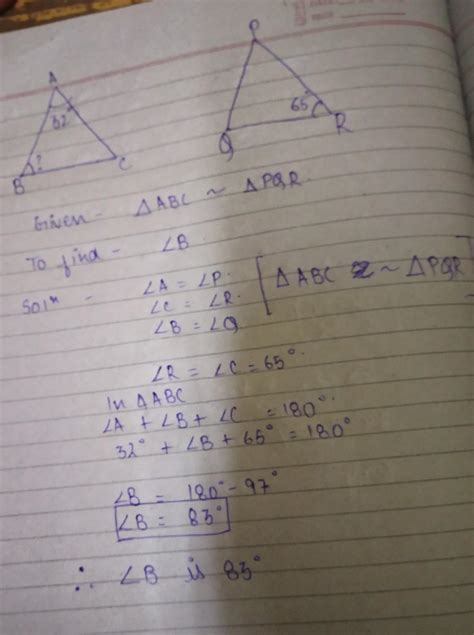 P
A
32°
65°
B
?
C
Q
R
Given - △ABC ~ △PQR.
To find - ∠B
Solⁿ - ∠A = ∠P. [△ABC ~ △PQR]
∠C = ∠R.
∠B = ∠Q
∠R = ∠C = 65°.
In △ABC
∠A + ∠B + ∠C = 180°.
32° + ∠B + 65° = 180°
∠B = 180° - 97°
∠B = 83°
∴ ∠B is 83°